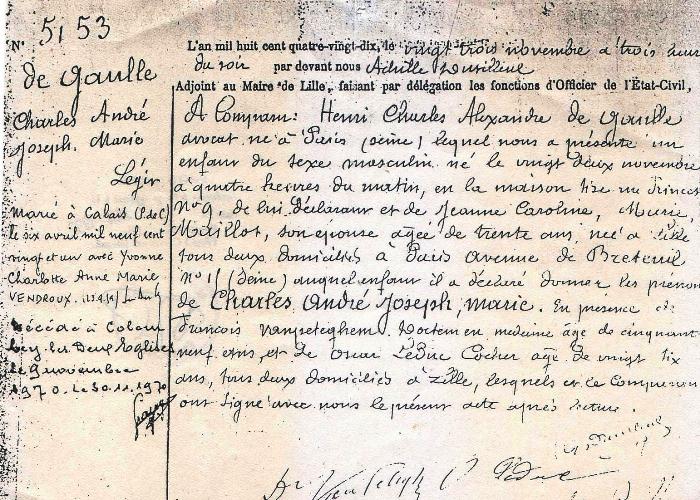 N° 5153
de Gaulle
Charles André
Joseph. Marie
Légit
Marié à Calais (P.de C)
le six avril mil neuf cent
vingt et un avec Yvonne
Charlotte Anne Marie
VENDROUX.
Décédé à Colom
bey-les-Deux-Eglises
le 9 novembre
1970. le 30.11.1970
L'an mil huit cent quatre-vingt-dix, le vingt trois novembre à trois heures
du soir par devant nous Achille
Adjoint au Maire de Lille, faisant par délégation les fonctions d'Officier de l'État-Civil,
A Comparu: Henri Charles Alexandre de Gaulle
avocat né à Paris (Seine) lequel nous a présenté un
enfant du sexe masculin né le vingt deux novembre
à quatre heures du matin, en la maison sise rue Princesse
N° 9, de lui déclarant et de Jeanne Caroline, Marie,
Maillot, son épouse agée de trente ans, née à Lille
tous deux domiciliés à Paris avenue de Breteuil
N° 15 (Seine) auquel enfant il a déclaré donner les prénoms
de Charles, André, Joseph, Marie. En présence de
francois docteur en médecine âgé de cinquante
neuf ans, et de Leduc Cocher agé de vingt six
ans, tous deux domiciliés à Lille, lesquels et le Comparant
ont signé avec nous le présent acte après lecture.